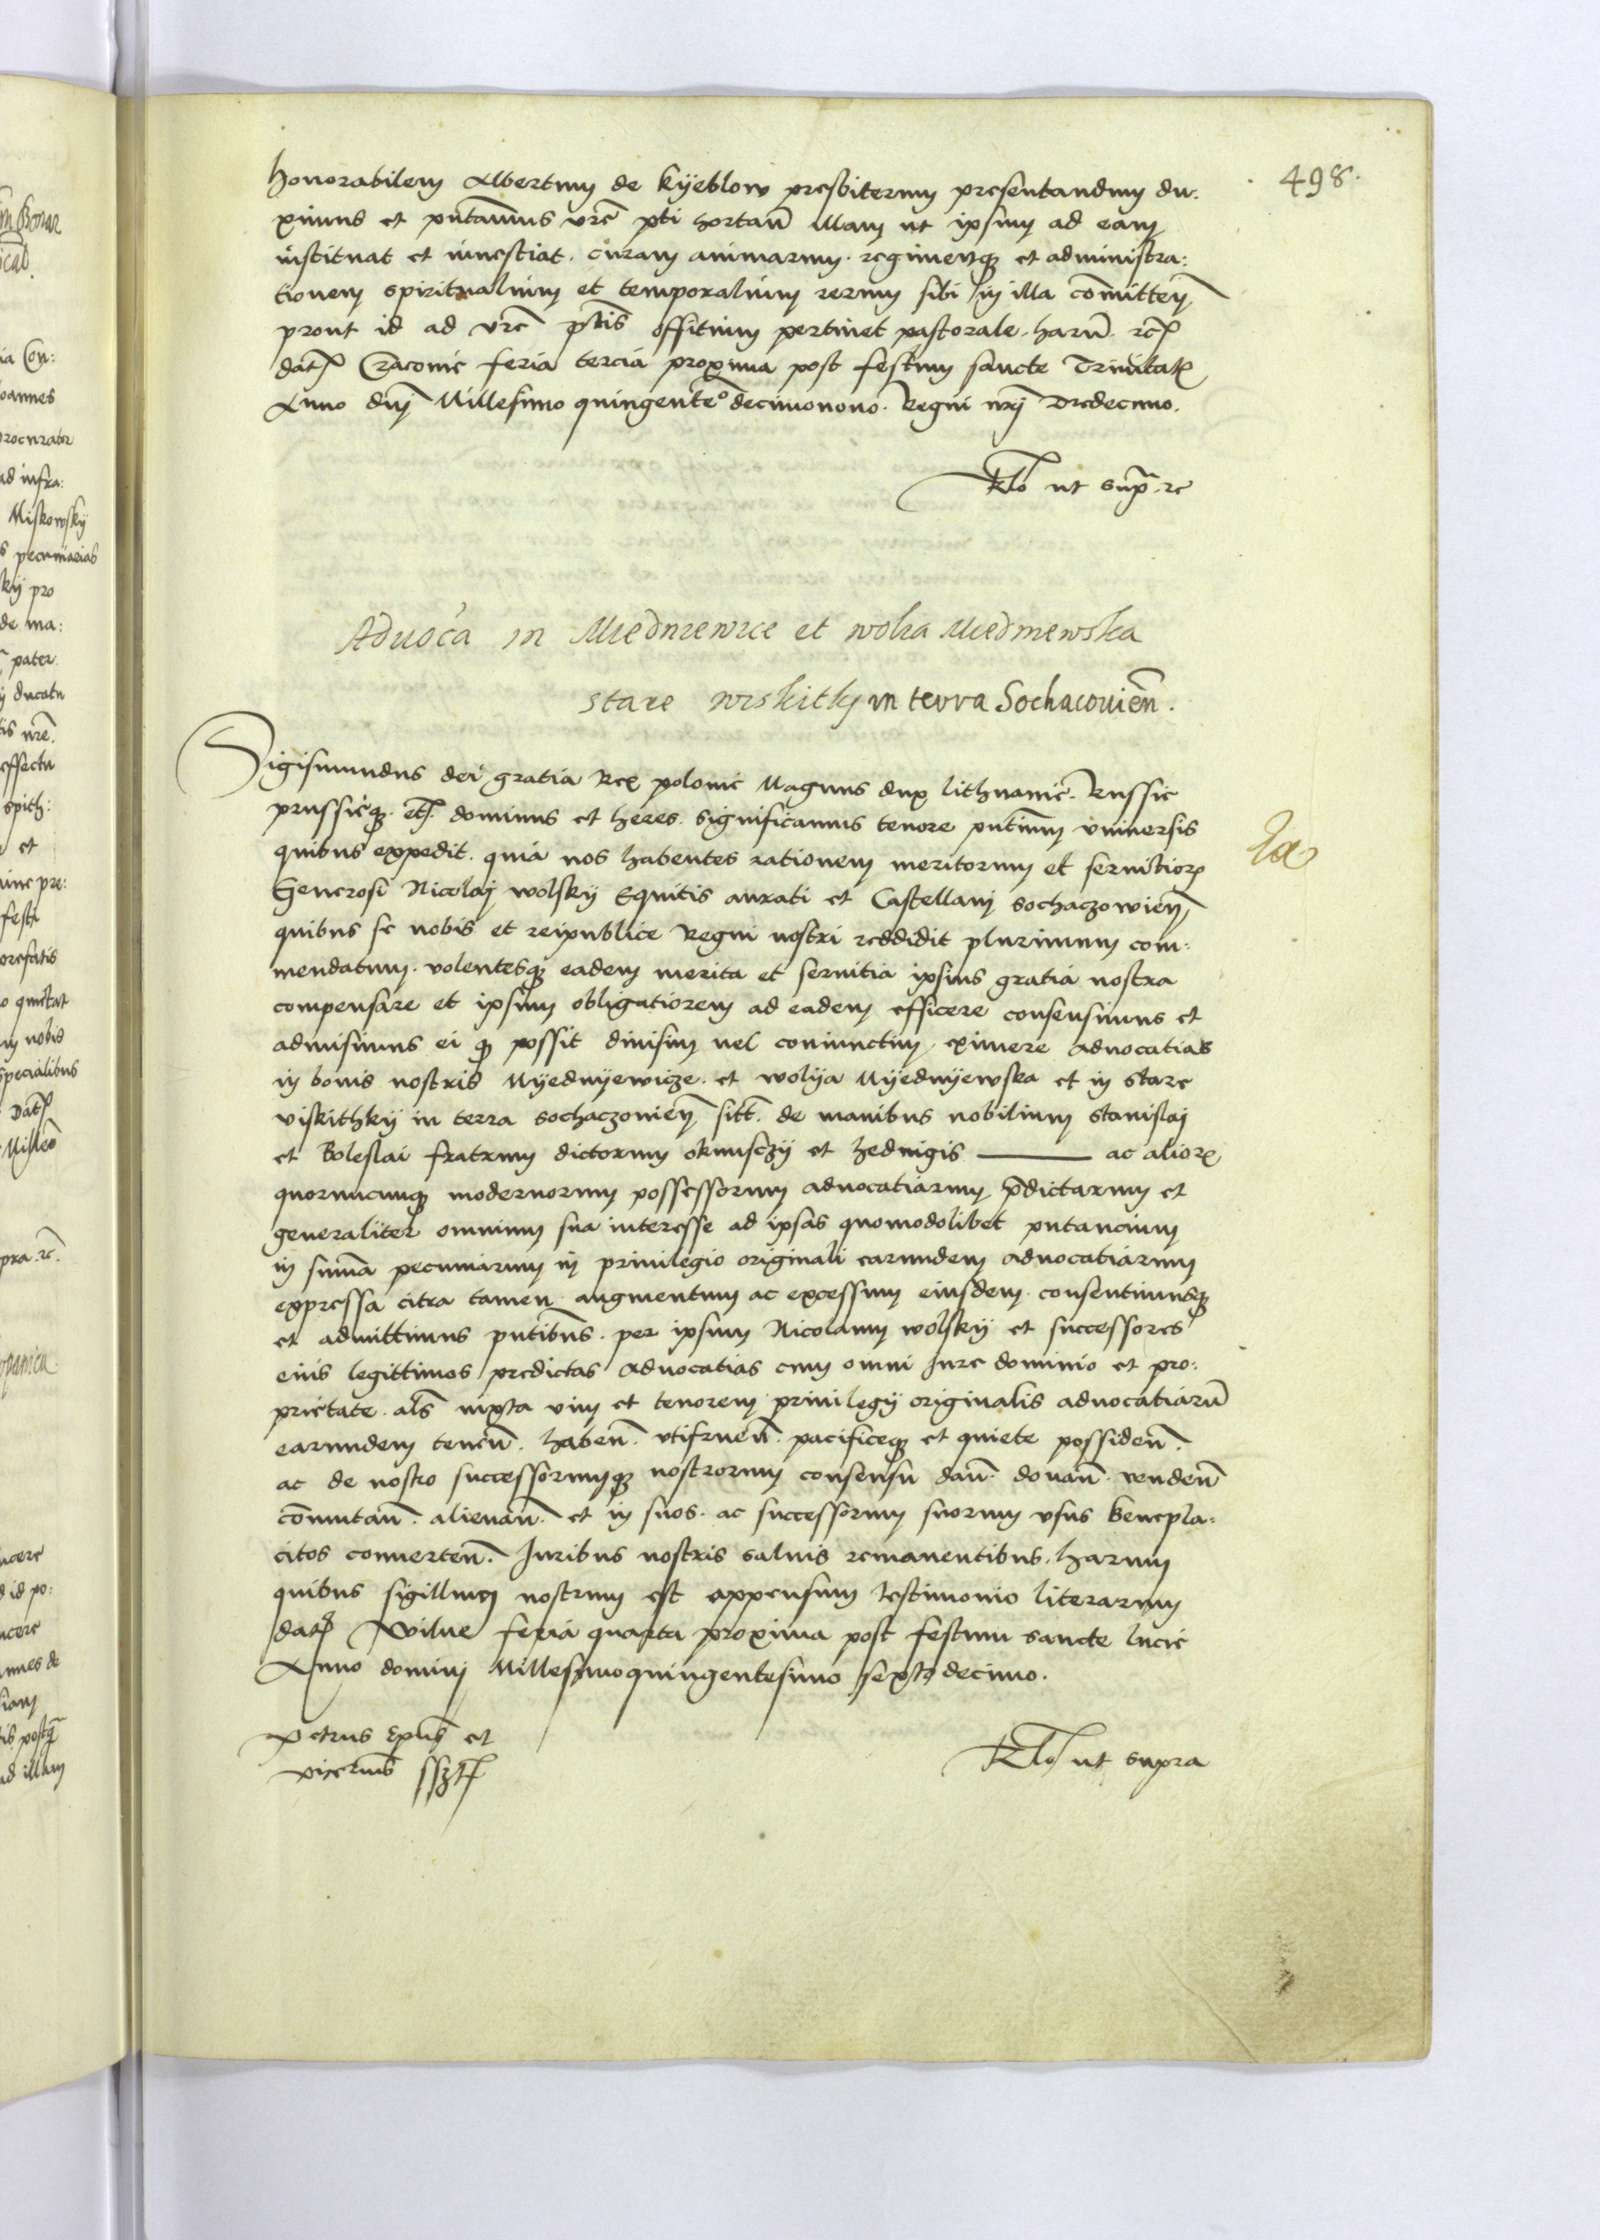 498.
honorabilem Albertum de Kyeblow presbiterum presentandum du-
ximus et pntamus vre pti hortan̄ illam ut ipsum ad eam
instituat et inuestiat. curam animarum. regimenq3 et administra:
tionem spiritualium et temporalium rerum sibi in illa com̄itten̄
prout id ad vre ptis offitium pertinet pastorale. harū rc̄
dat̄ Cracouie feria tercia proxima post festum sancte Trinitat̄
Anno dnj Millesimo quingenteº decimonono. Regni nrj Tredecimo.
Rlo ut sup̄. rc
Aduoca in Miednrewice et wolia Miedniewska
stare wiskitky in terra Sochacouien̄.
Sigismundus dei gratia Rex polonie Magnus dux lithuanie. Russie
prussieq3. etc̄. dominus et heres. significamus tenore pntium vniuersis
quibus expedit. quia nos habentes rationem meritorum et seruitior̄
Generosi Nicolaj wolsky Equitis aurati et Castellanj sochaczowien̄
quibus se nobis et reipublice Regni nostri reddidit plurimum com:
mendatum. volentesq3 eadem merita et seruitia ipsius gratia nostra
compensare et ipsum obligatiorem ad eadem efficere consensimus et
admisimus ei q3 possit diuisim vel coniunctim eximere aduocatias
in bonis nostris Myednyewicze. et wolya Myednyewska et in stare
viskithky in terra sochaczouien̄ sitt̄. de manibus nobilium stanislaj
et Boleslai fratrum dictorum okunsczy et hedwigis ——— ac alior̄
quorumcunq3 modernorum possessorum aduocatiarum p̄dictarum et
generaliter omnium sua interesse ad ipsas quomodolibet putancium
in sum̄a pecuniarum in priuilegio originali earundem aduocatiarum
expressa citra tamen augmentum ac excessum eiusdem. consentimusq3
et admittimus pntibus. per ipsum Nicolaum wolsky et successores
eius legittimos predictas aduocatias cum omni Jure dominio et pro:
prietate. als̄ iuxta vim et tenorem priuilegy originalis aduocatiarū
earundem tenen̄. haben̄. vtifruen̄. pacificeq3 et quiete possiden̄.
ac de nostro successorumq3 nostrorum consensu dan̄. donan̄. venden̄
com̄utan̄. alienan̄. et in suos. ac successorum suorum vsus benepla:
citos conuerten̄. Juribus nostris saluis remanentibus. harum
quibus sigillum nostrum est appensum testimonio literarum
dat̄ Wilne feria quarta proxima post festum sancte lucie
Anno dominj Millesimoquingentesimo sexto decimo.
Petrus Ep̄us et
vicecan̄s sszt̄
Rlo ut supra